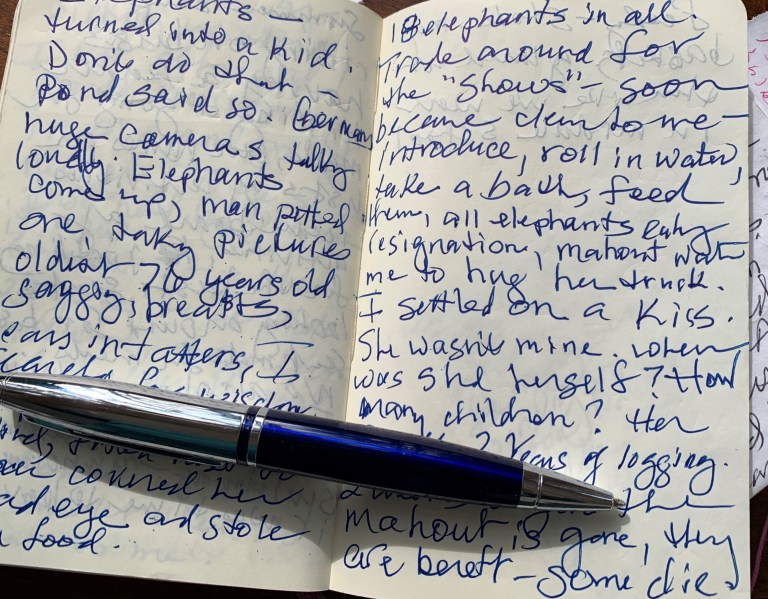 Elephants —
turned into a kid.
Don't do that —
Pond said so. German
huge cameras talky
loudly. Elephants
come up, man petted
one taking pictures
oldest 70 years old
saggy breasts,
ears in tatters, I
covered her
eye and stole
food.
18 elephants in all.
Trade around for
the "shows" — soon
became clear to me —
introduce, roll in water,
take a bath, feed
them, all elephants eaty
resignation, mahout wants
me to hug her trunk.
I settled on a kiss.
She wasn't mine. When
was she herself? How
many children? Her
? Years of logging.
the
mahout is gone, they
are bereft — some die.